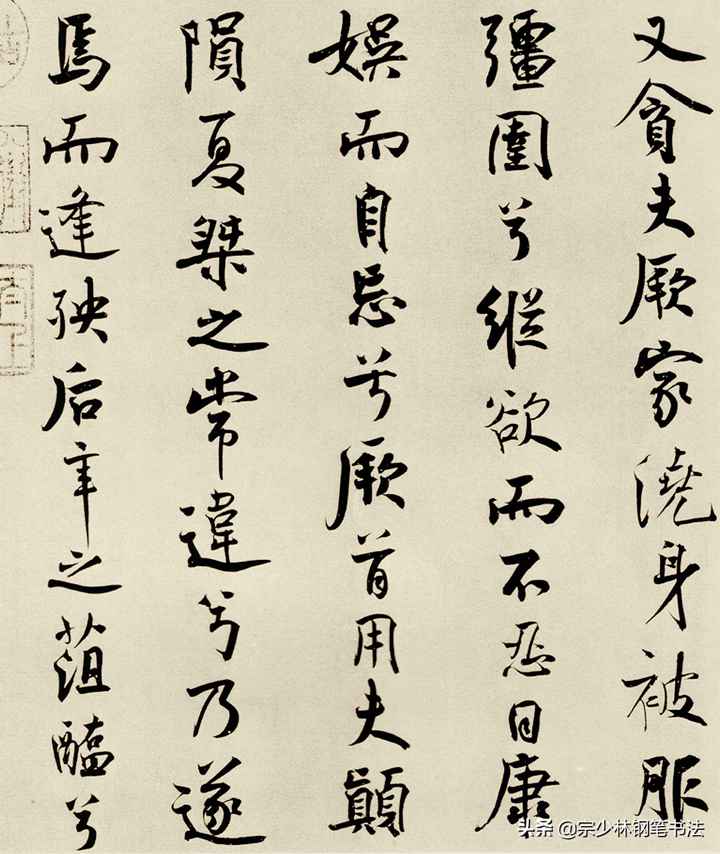 又貪夫厥家澆身被服
彊圉兮縱欲而不忍日康
娛而自忘兮厥首用夫顛
隕夏桀之常違兮乃遂
焉而逢殃后辛之菹醢兮
头条 @宗少林钢笔书法